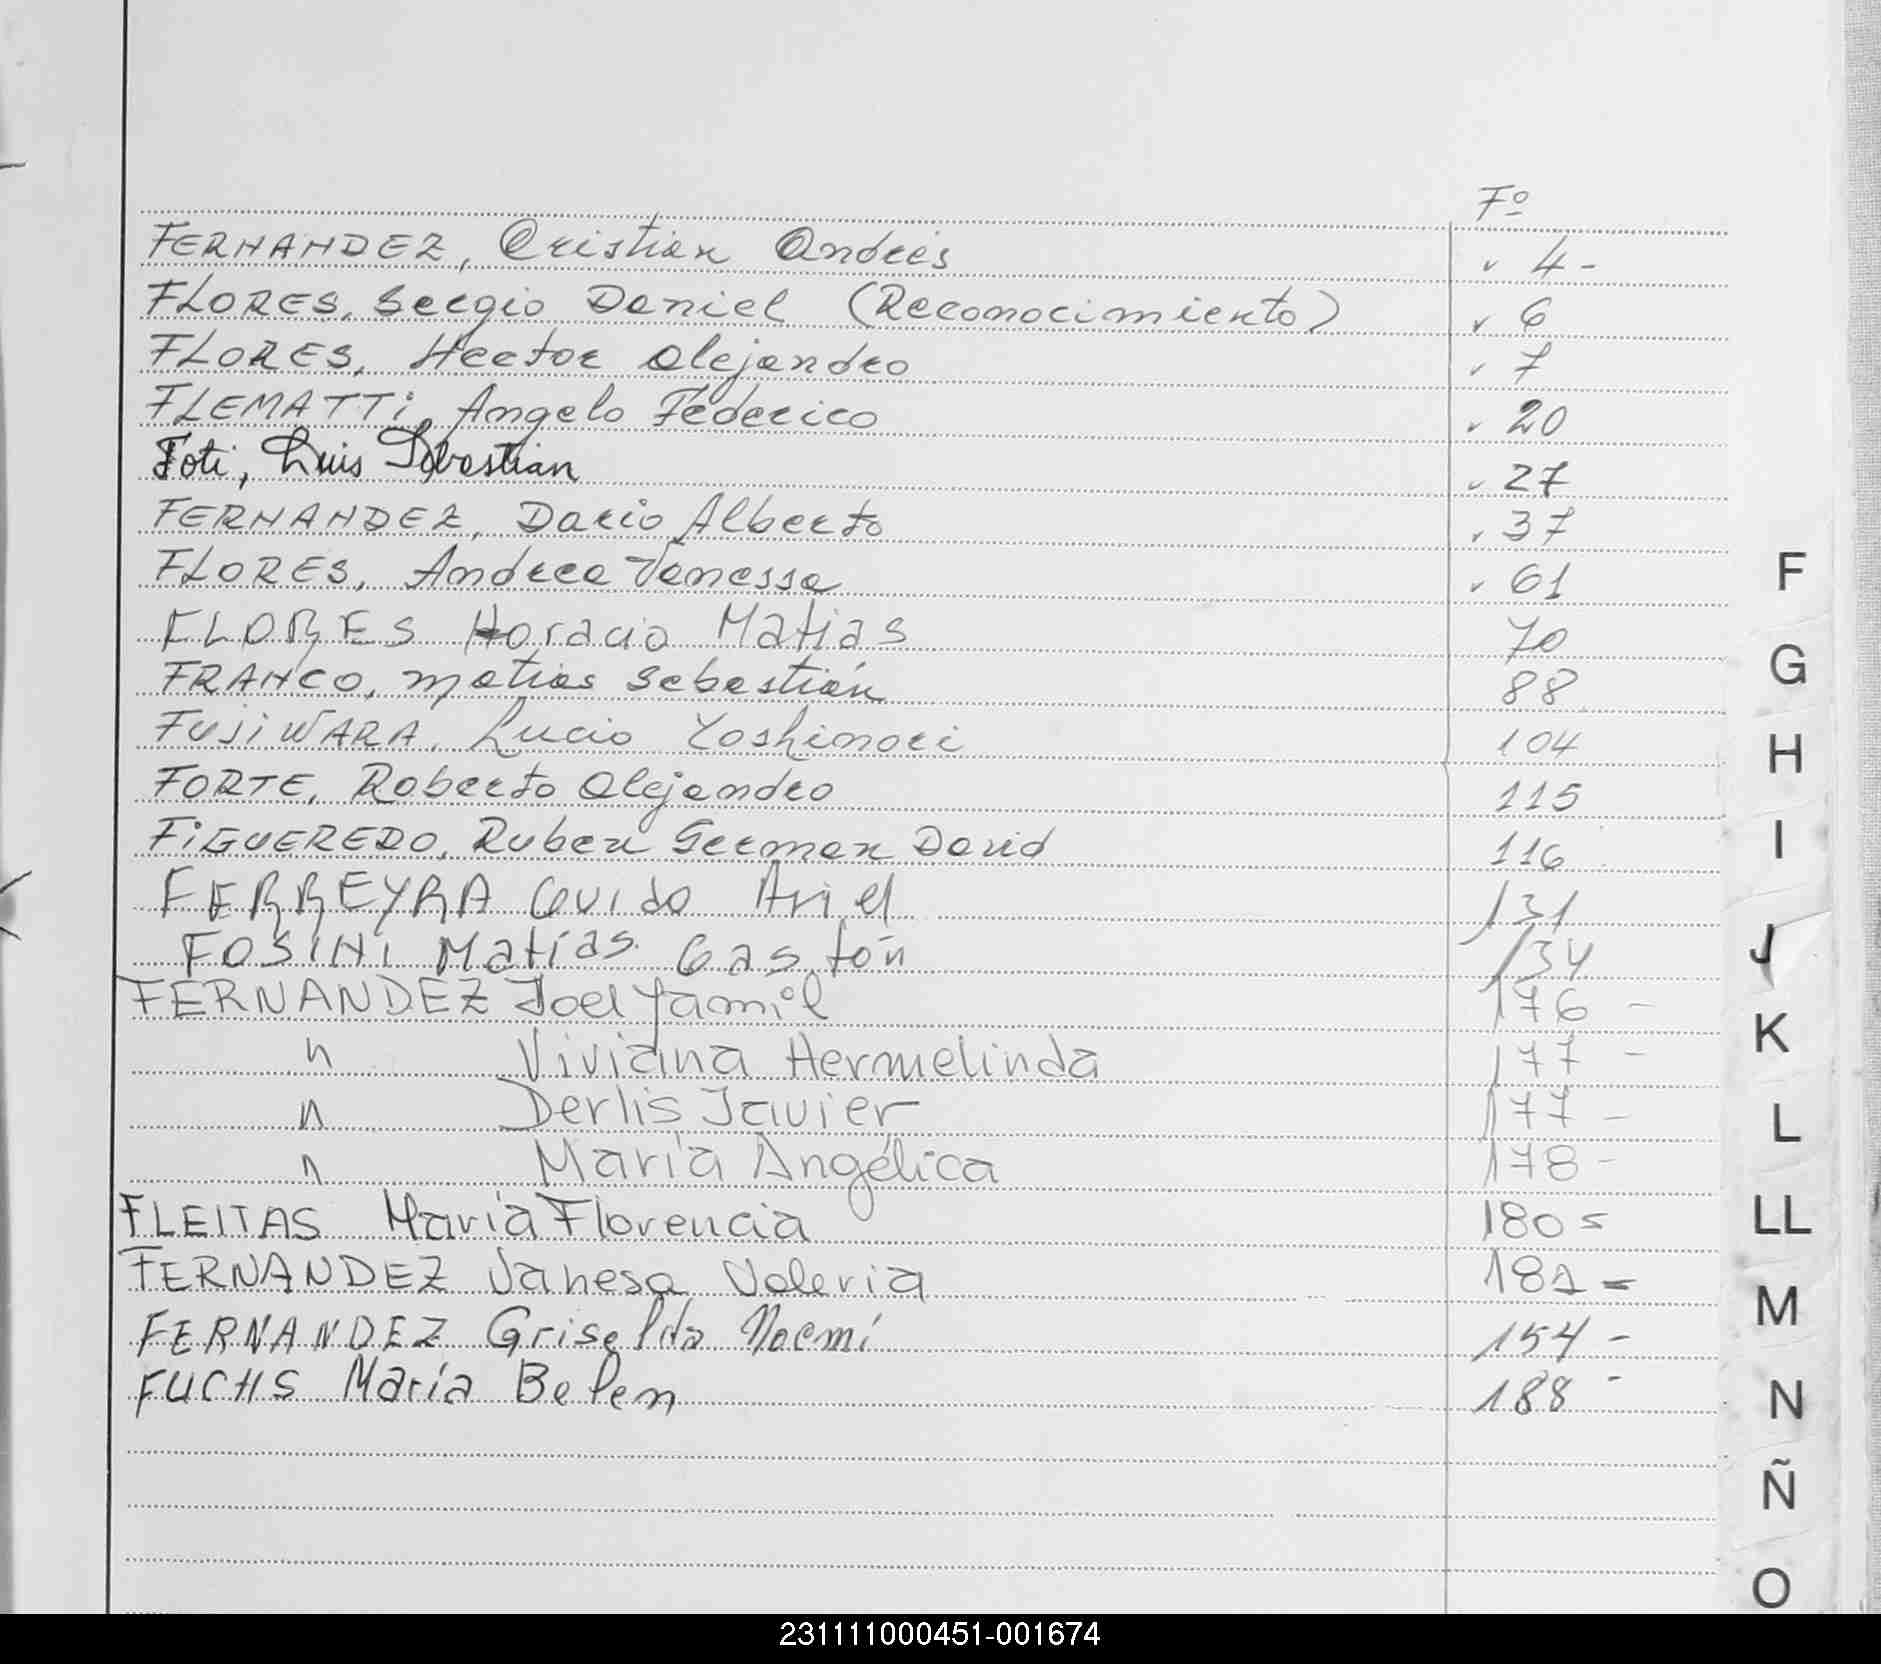 Fº
FERNANDEZ, Cristian Andrés ✓ 4-
FLORES, Sergio Daniel (Reconocimiento) ✓ 6
FLORES, Hector Alejandro ✓ 7
FLEMATTi, Angelo Federico ✓ 20
Foti, Luis Sebastian ✓ 27
FERNANDEZ, Dario Alberto ✓ 37
FLORES, Andrea Vanessa ✓ 61
FLORES Horacio Matias 70
FRANCO, Matias Sebastián 88
FUJiWARA, Lucio Yoshinori 104
FORTE, Roberto Alejandro 115
FiGUEREDO, Ruben German David 116
FERREYRA Guido Ariel 131
FOSINI Matías Gastón 134
FERNANDEZ Joel Yamil 176 -
" Viviana Hermelinda 177 -
" Derlis Javier 177 -
" María Angélica 178 -
FLEITAS María Florencia 180 =
FERNANDEZ Vanesa Valeria 181 =
FERNANDEZ Griselda Noemí 154 -
FUCHS María Belen 188 -
F
G
H
I
J
K
L
LL
M
N
Ñ
O
231111000451-001674